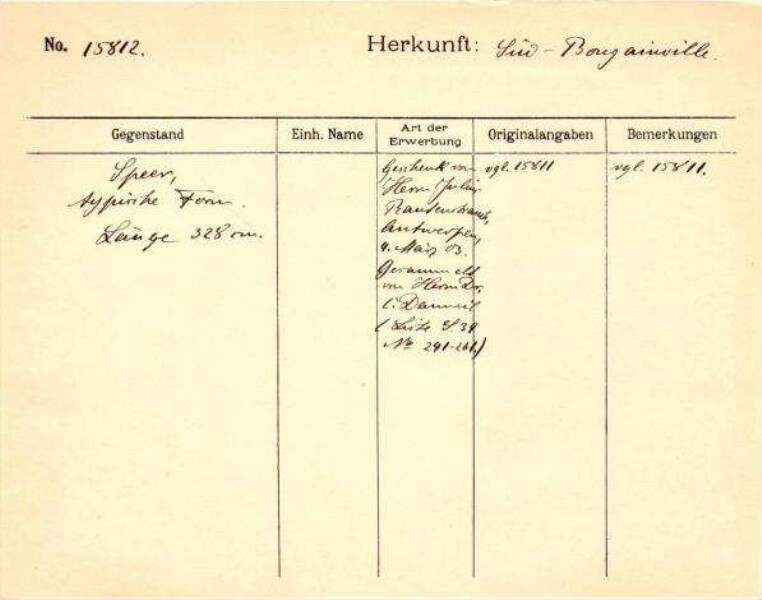 No. 15812.
Herkunft: Süd-Bougainville.
Gegenstand
Einh. Name
Art der Erwerbung
Originalangaben
Bemerkungen
Speer,
typische Form.
Länge 328 cm.
Geschenk von
Herrn Julius
Rautenstrauch,
Antwerpen,
4. März 03.
Gesammelt
von Herrn Dr.
(Liste S. 34
No 241-261.)
vgl. 15811
vgl. 15811.